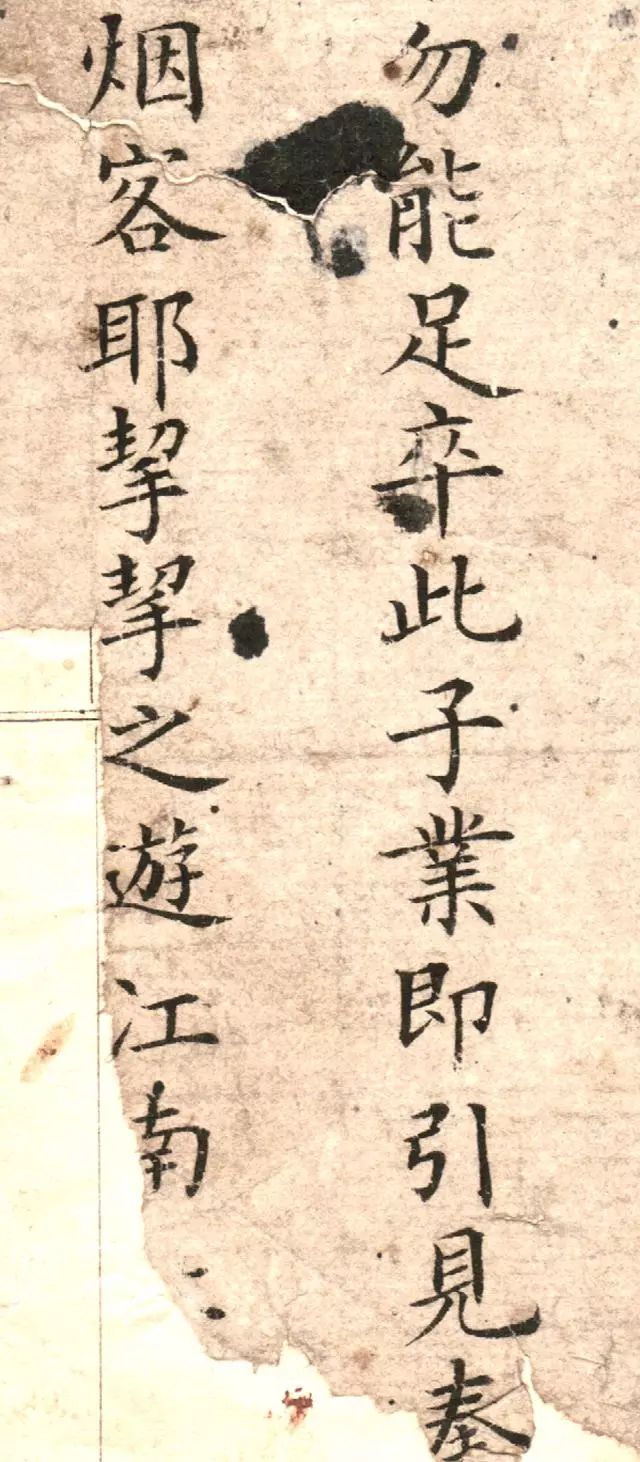 勿能足卒此子業即引見奏
烟客耶挈挈之遊江南